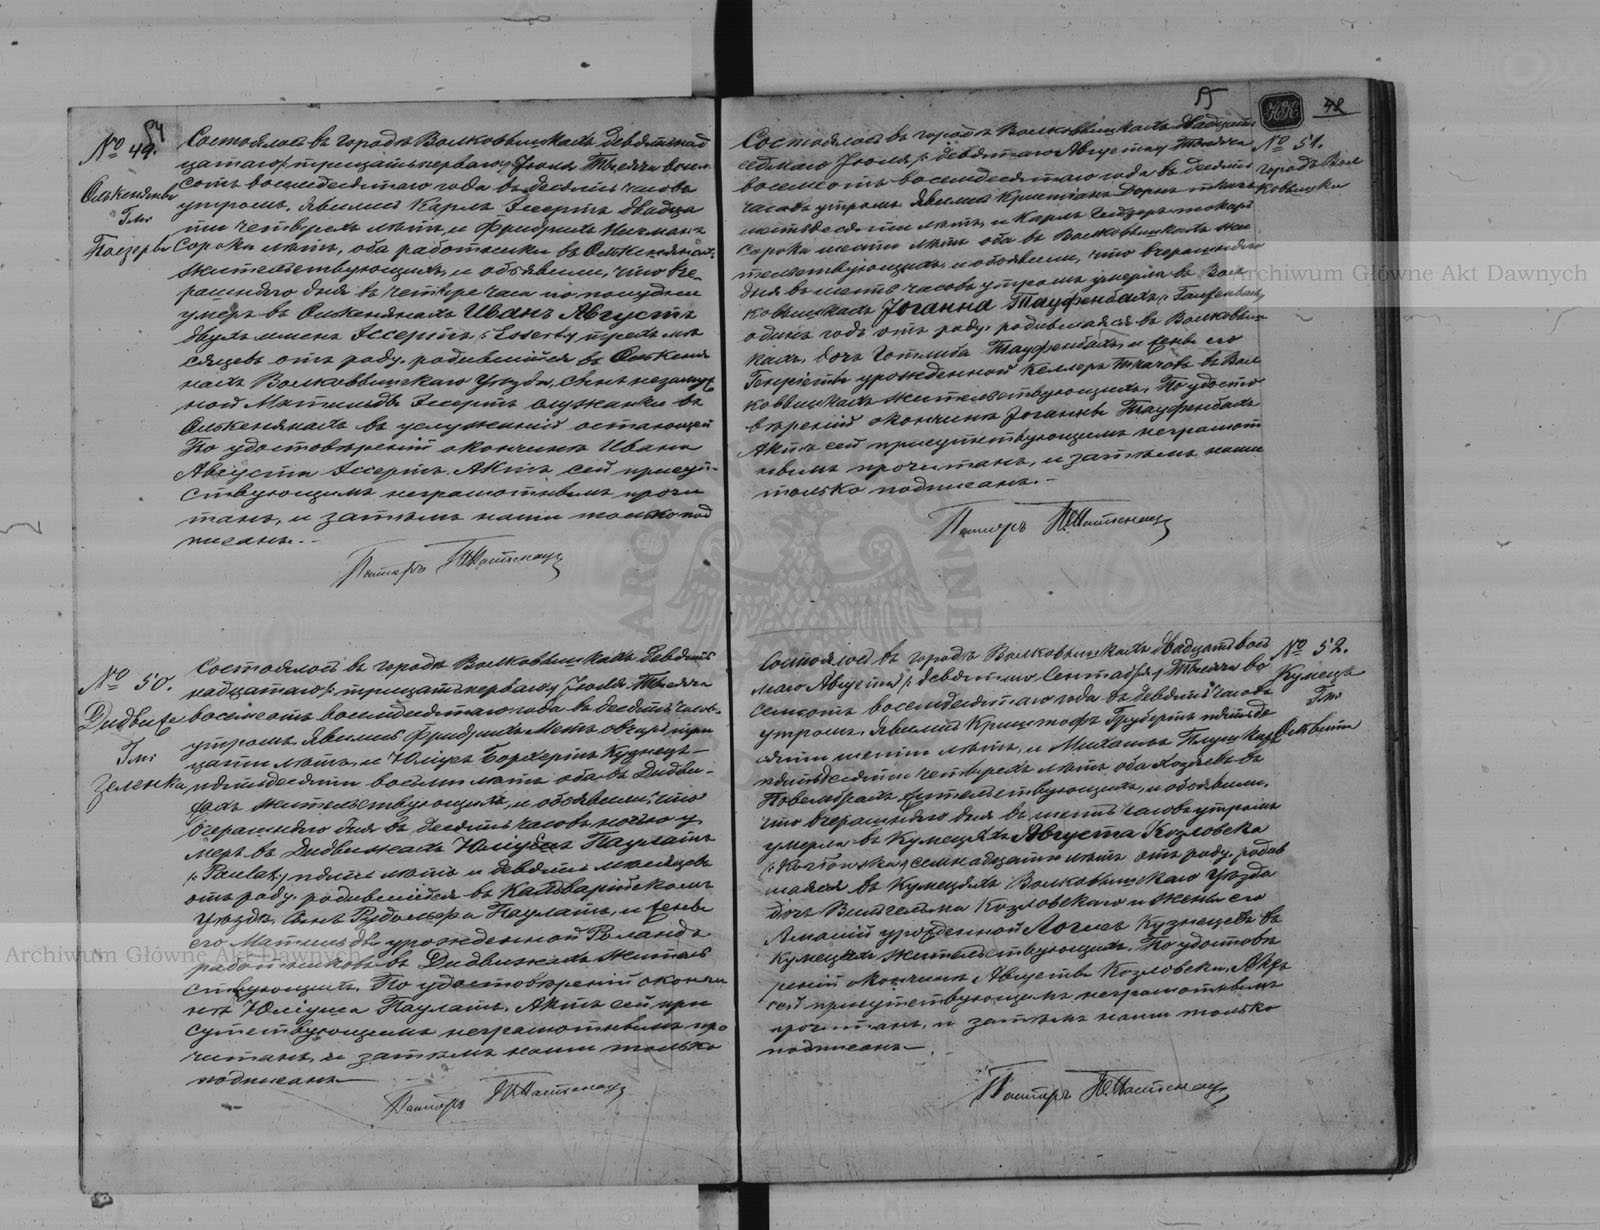 54
№ 49.
Олькеняны
Гм:
Поезеры
Состоялось въ городѣ Волковышкахъ девятнад
цатаго /: тридцать перваго :/ Іюля Тысяча восем
сотъ восемдесятаго года въ десять часовъ
утромъ. Явились Карлъ Эссертъ двадца
ти четырехъ лѣтъ, и Фридрихъ
сорока лѣтъ, оба работники въ Олькенянахъ
жительствующіе, и объявили, что вче
рашняго дня въ четыре часа по полудни
умеръ въ Олькенянахъ Иванъ Августъ
двухъ именъ Эссертъ /: Essert :/ трехъ мѣ
сяцевъ отъ роду, родившійся въ Олькеня
нахъ Волковышскаго Уѣзда, сынъ незамуж
ной Матильды Эссертъ служанки въ
Олькенянахъ въ услуженіи остающей
По удостовѣреніи о кончинѣ Ивана
Августа Эссертъ, Актъ сей присут
ствующимъ неграмотнымъ прочи
танъ, и затѣмъ нами только под
писанъ. -
Пасторъ
№ 50.
Дидвиже
Гм:
Зеленка
Состоялось въ городѣ Волковышкахъ девят
надцатаго /: тридцать перваго :/ Іюля Тысяча
восемсотъ восемдесятаго года въ десять часовъ
утромъ. Явились Фридрихъ Метъ овчаръ трид
цати лѣтъ, и Юліусъ Борхертъ Кузнецъ
пятьдесяти восьми лѣтъ оба въ Дидви-
жахъ жительствующіе, и объявили, что
вчерашняго дня въ десять часовъ ночью у
меръ въ Дидвижахъ Юліусъ Паулатъ
/: Paulat :/ пять лѣтъ и девять мѣсяцевъ
отъ роду, родившійся въ Кальварійскомъ
Уѣздѣ, сынъ Рудольфа Паулатъ, и жены
его Матильды урожденной Роландъ
работниковъ въ Дидвижахъ житель
ствующихъ. По удостовѣреніи о кончи
нѣ Юліуса Паулатъ, Актъ сей при
сутствующимъ неграмотнымъ про
читанъ, и затѣмъ нами только
подписанъ
Пасторъ
48
№ 51.
городъ Вол
ковышки
Состоялось въ городѣ Волковышкахъ двадцать
седьмаго Іюля /: девятаго Августа :/ Тысяча
восемсотъ восемдесятаго года въ десять
часовъ утромъ. Явились Христіанъ Дорнъ ткачъ
шестьдесяти лѣтъ, и Карлъ токарь
сорока шести лѣтъ оба въ Волковышкахъ жи
тельствующіе, и объявили, что вчерашняго
дня въ шесть часовъ утромъ умерла въ Вол
ковышкахъ Іоганна Тауфенбахъ /: Taufenbach :/
одинъ годъ отъ роду, родившаяся въ Волковыш
кахъ, дочь Готлиба Тауфенбахъ, и жены его
Генріеты урожденной Келлеръ ткачовъ въ Вол
ковышкахъ жительствующихъ. По удосто
вѣреніи о кончинѣ Іоганны Тауфенбахъ
Актъ сей присутствующимъ неграмот
нымъ прочитанъ, и затѣмъ нами
только подписанъ. -
Пасторъ
№ 52.
Кумецъ
Гм:
Состоялось въ городѣ Волковышкахъ двадцать вось
маго Августа /: девятаго Сентября :/ Тысяча во
семсотъ восемдесятаго года въ девять часовъ
утромъ. Явились Криштофъ Грубертъ пятьде
сяти шести лѣтъ, и Михаилъ
пятьдесяти четырехъ лѣтъ оба хозяева въ
жительствующіе, и объявили,
что вчерашняго дня въ шесть часовъ утромъ
умерла въ Кумецяхъ Августа Козловска
/: Kozłowska :/ семнадцати лѣтъ отъ роду, родив
шаяся въ Кумецяхъ Волковышскаго Уѣзда
дочь Вильгельма Козловскаго и жены его
Амаліи урожденной въ
Кумецяхъ жительствующихъ. По удостовѣ
реніи о кончинѣ Августы Козловски, Актъ
сей присутствующимъ неграмотнымъ
прочитанъ, и затѣмъ нами только
подписанъ
Пасторъ
Archiwum Główne Akt Dawnych
Archiwum Główne Akt Dawnych